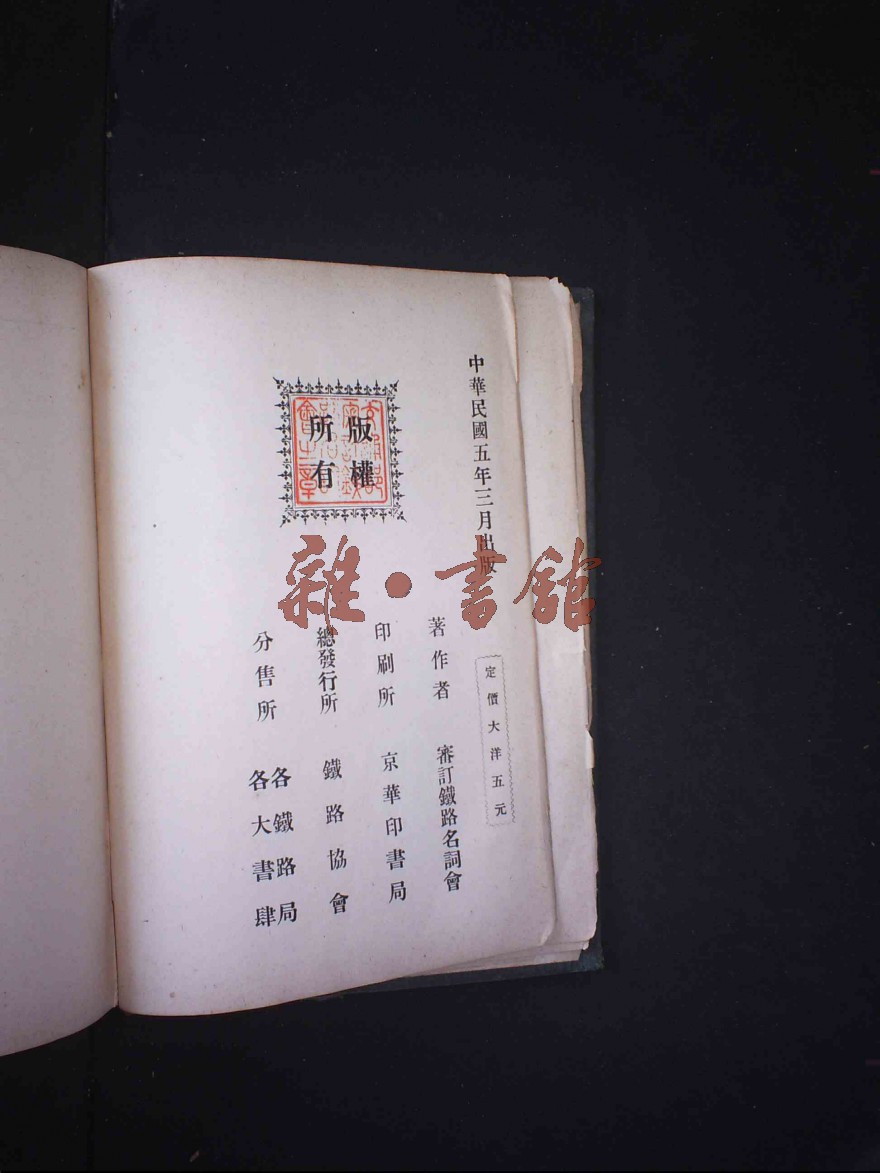 中華民國五年三月出版
定價大洋五元
版權
所有
著作者 審訂鐵路名詞會
印刷所 京華印書局
總發行所 鐵路協會
分售所 各鐵路局
各大書肆
雜·書館